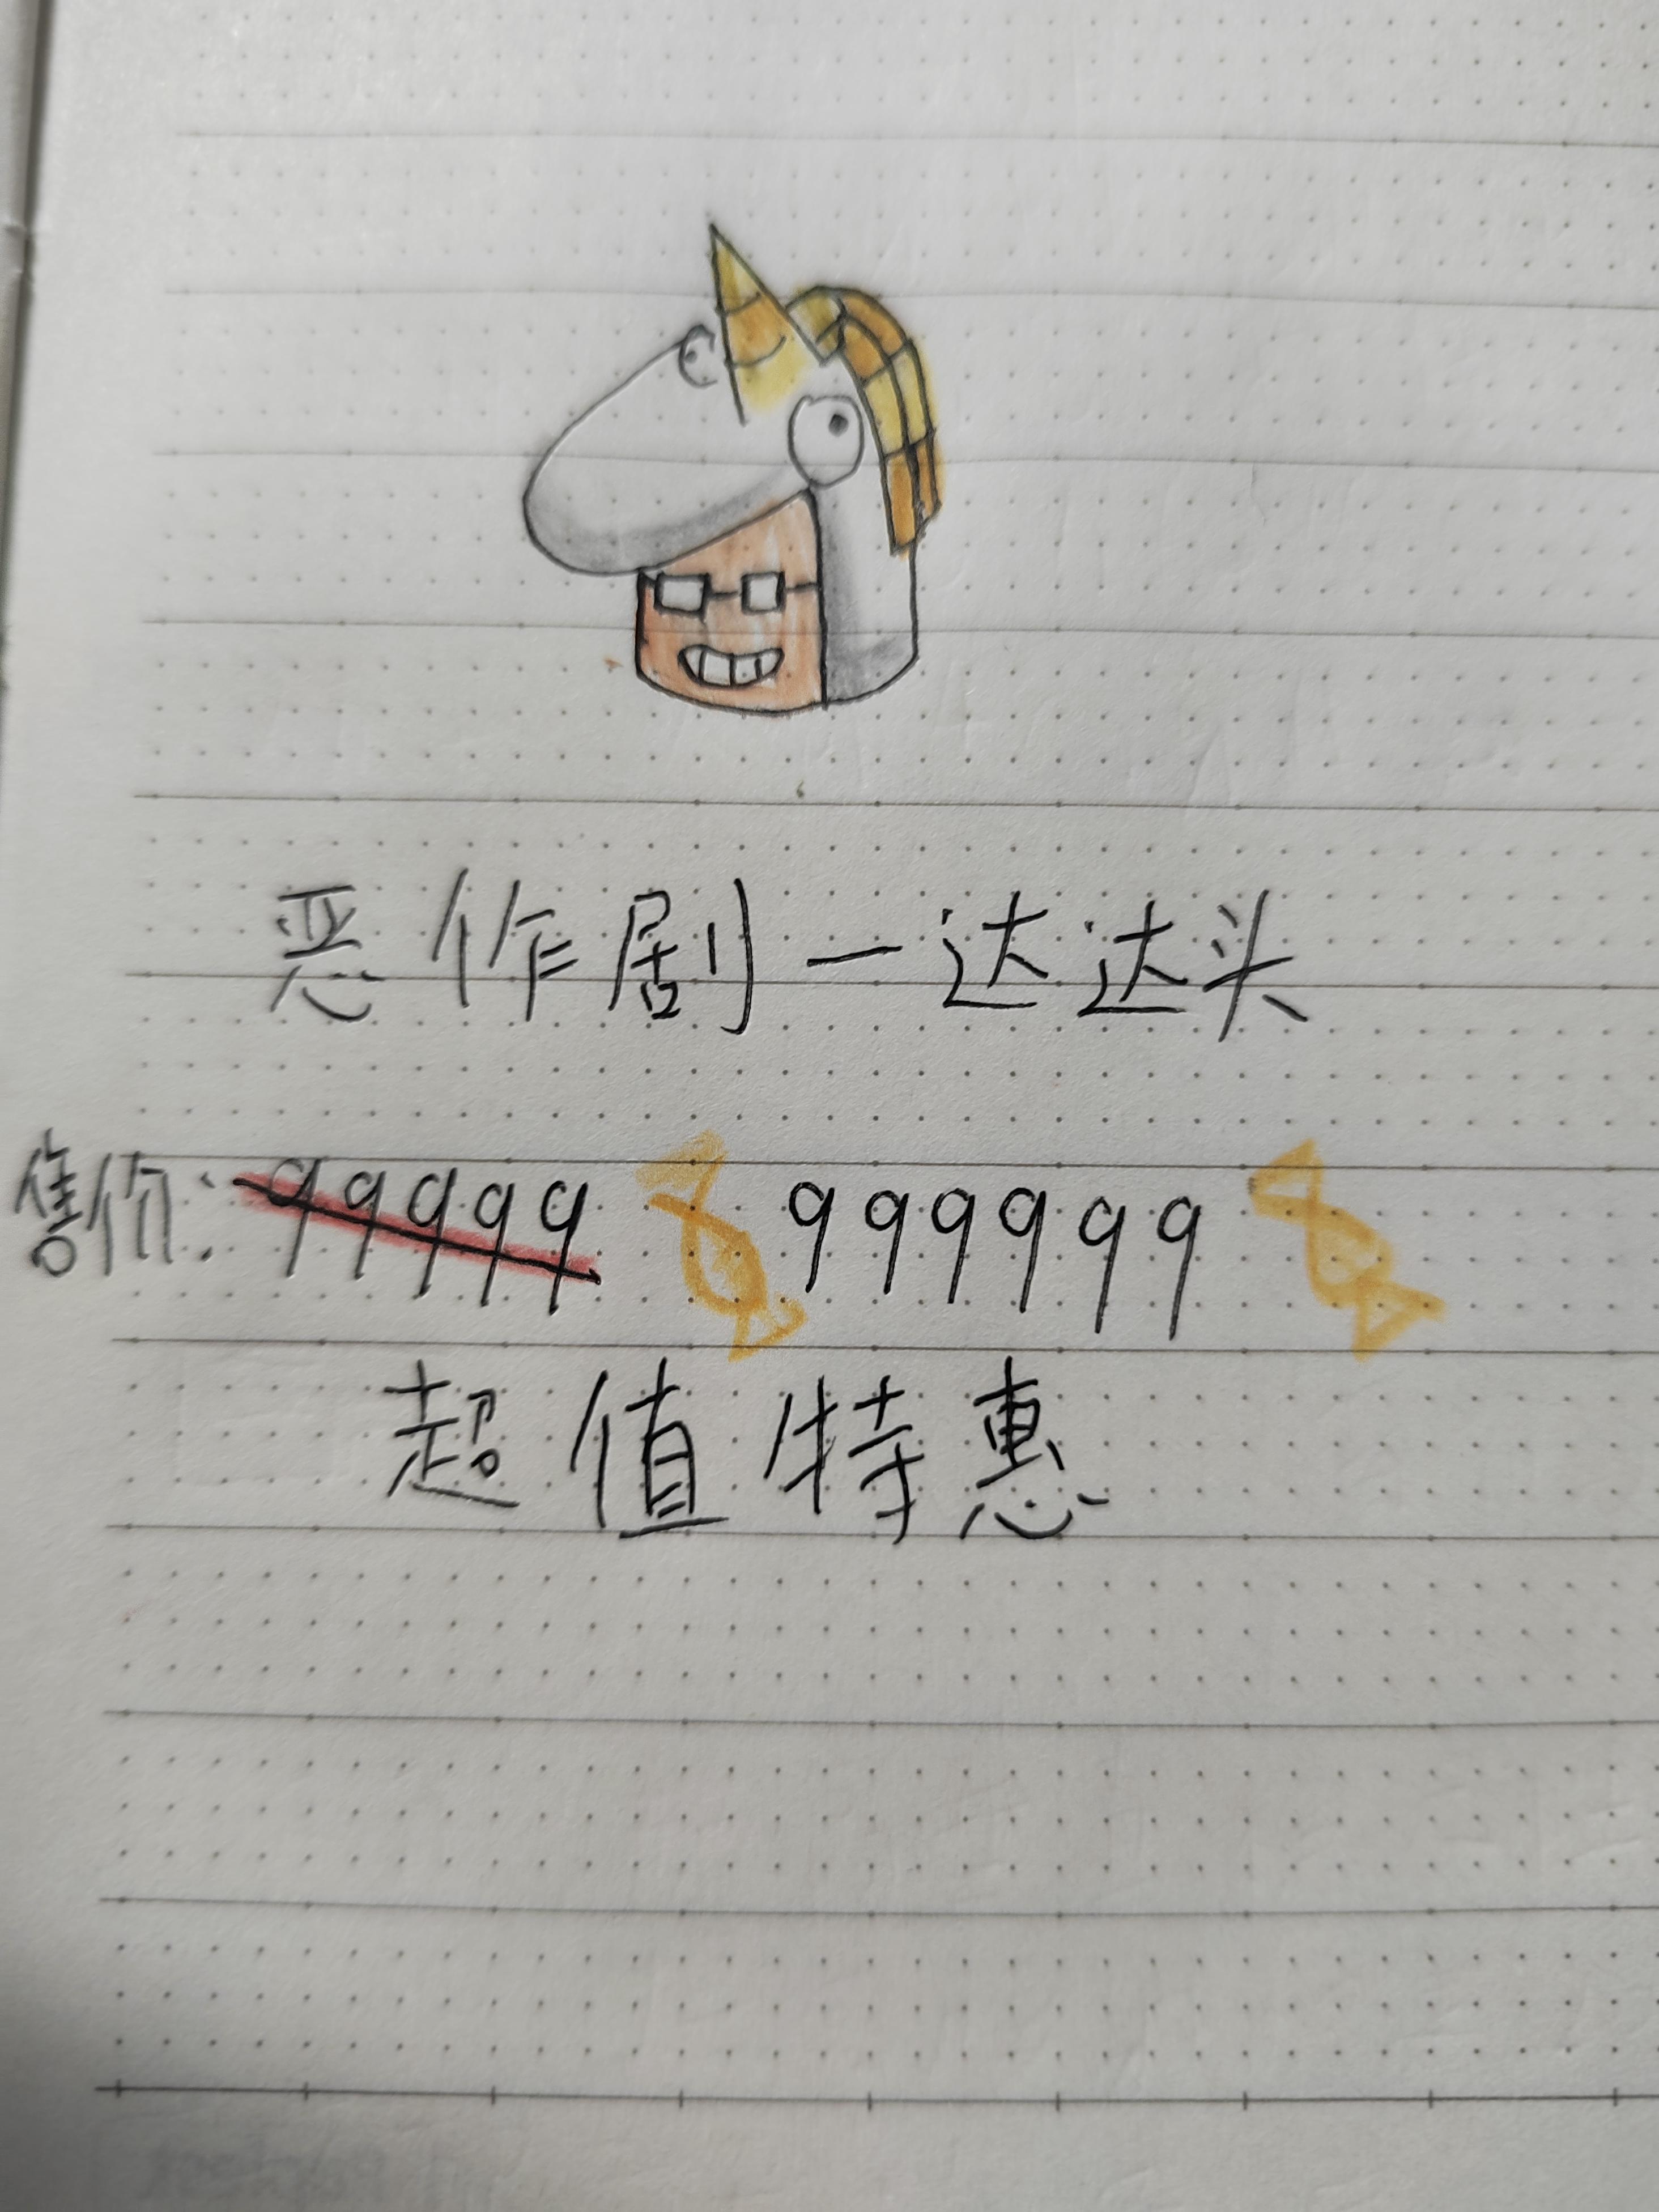 恶作剧一达达头
售价:99999 999999
超值特惠